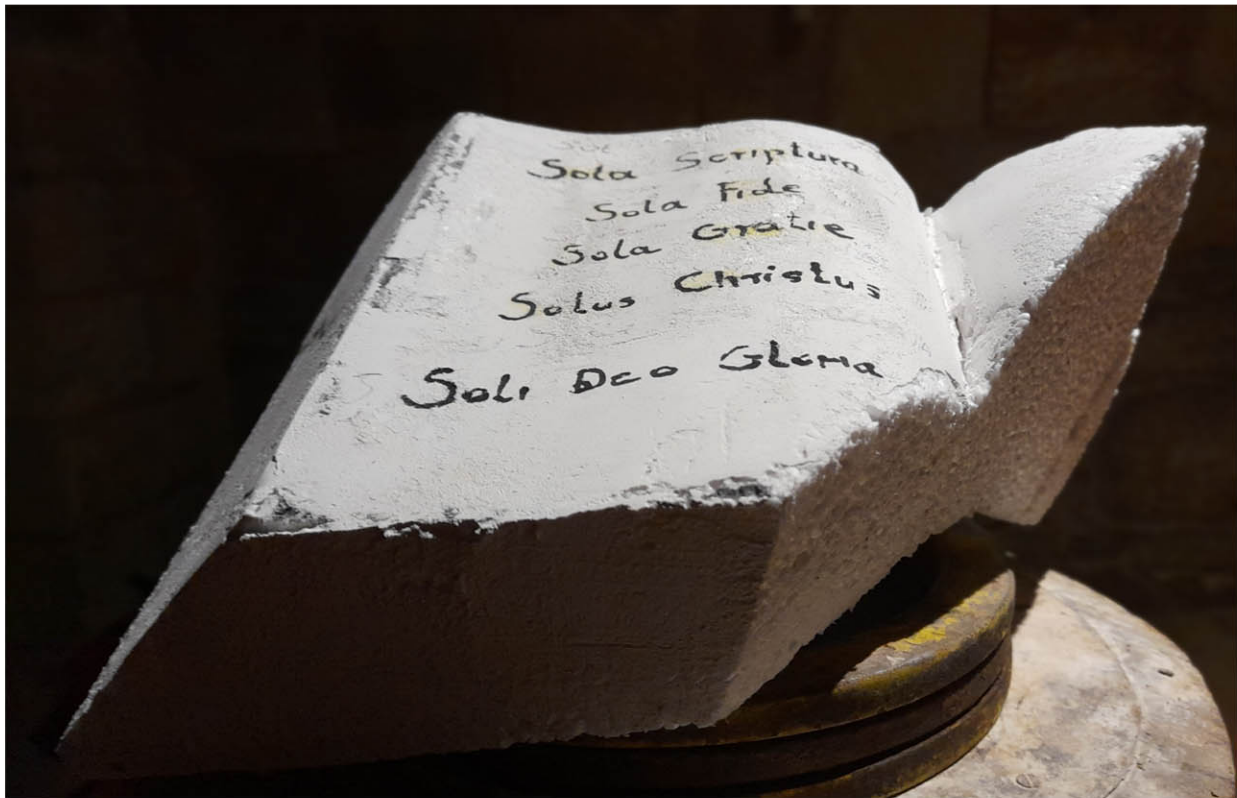 Sola Scriptura
Sola Fide
Sola Gratie
Solus Christus
Soli Deo Gloria